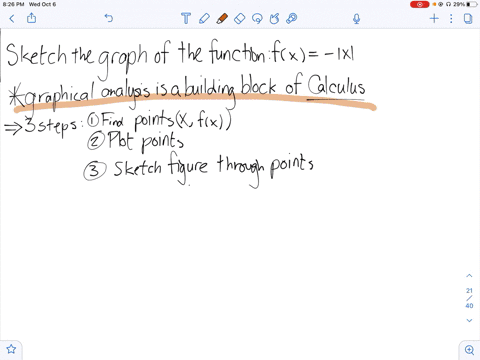 8:26 PM Wed Oct 6
29%
Sketch the graph of the function: f(x) = -|x|
*graphical analysis is a building block of Calculus
⇒ 3 steps: ① Find points (x, f(x))
② Plot points
③ Sketch figure through points
21
/
40